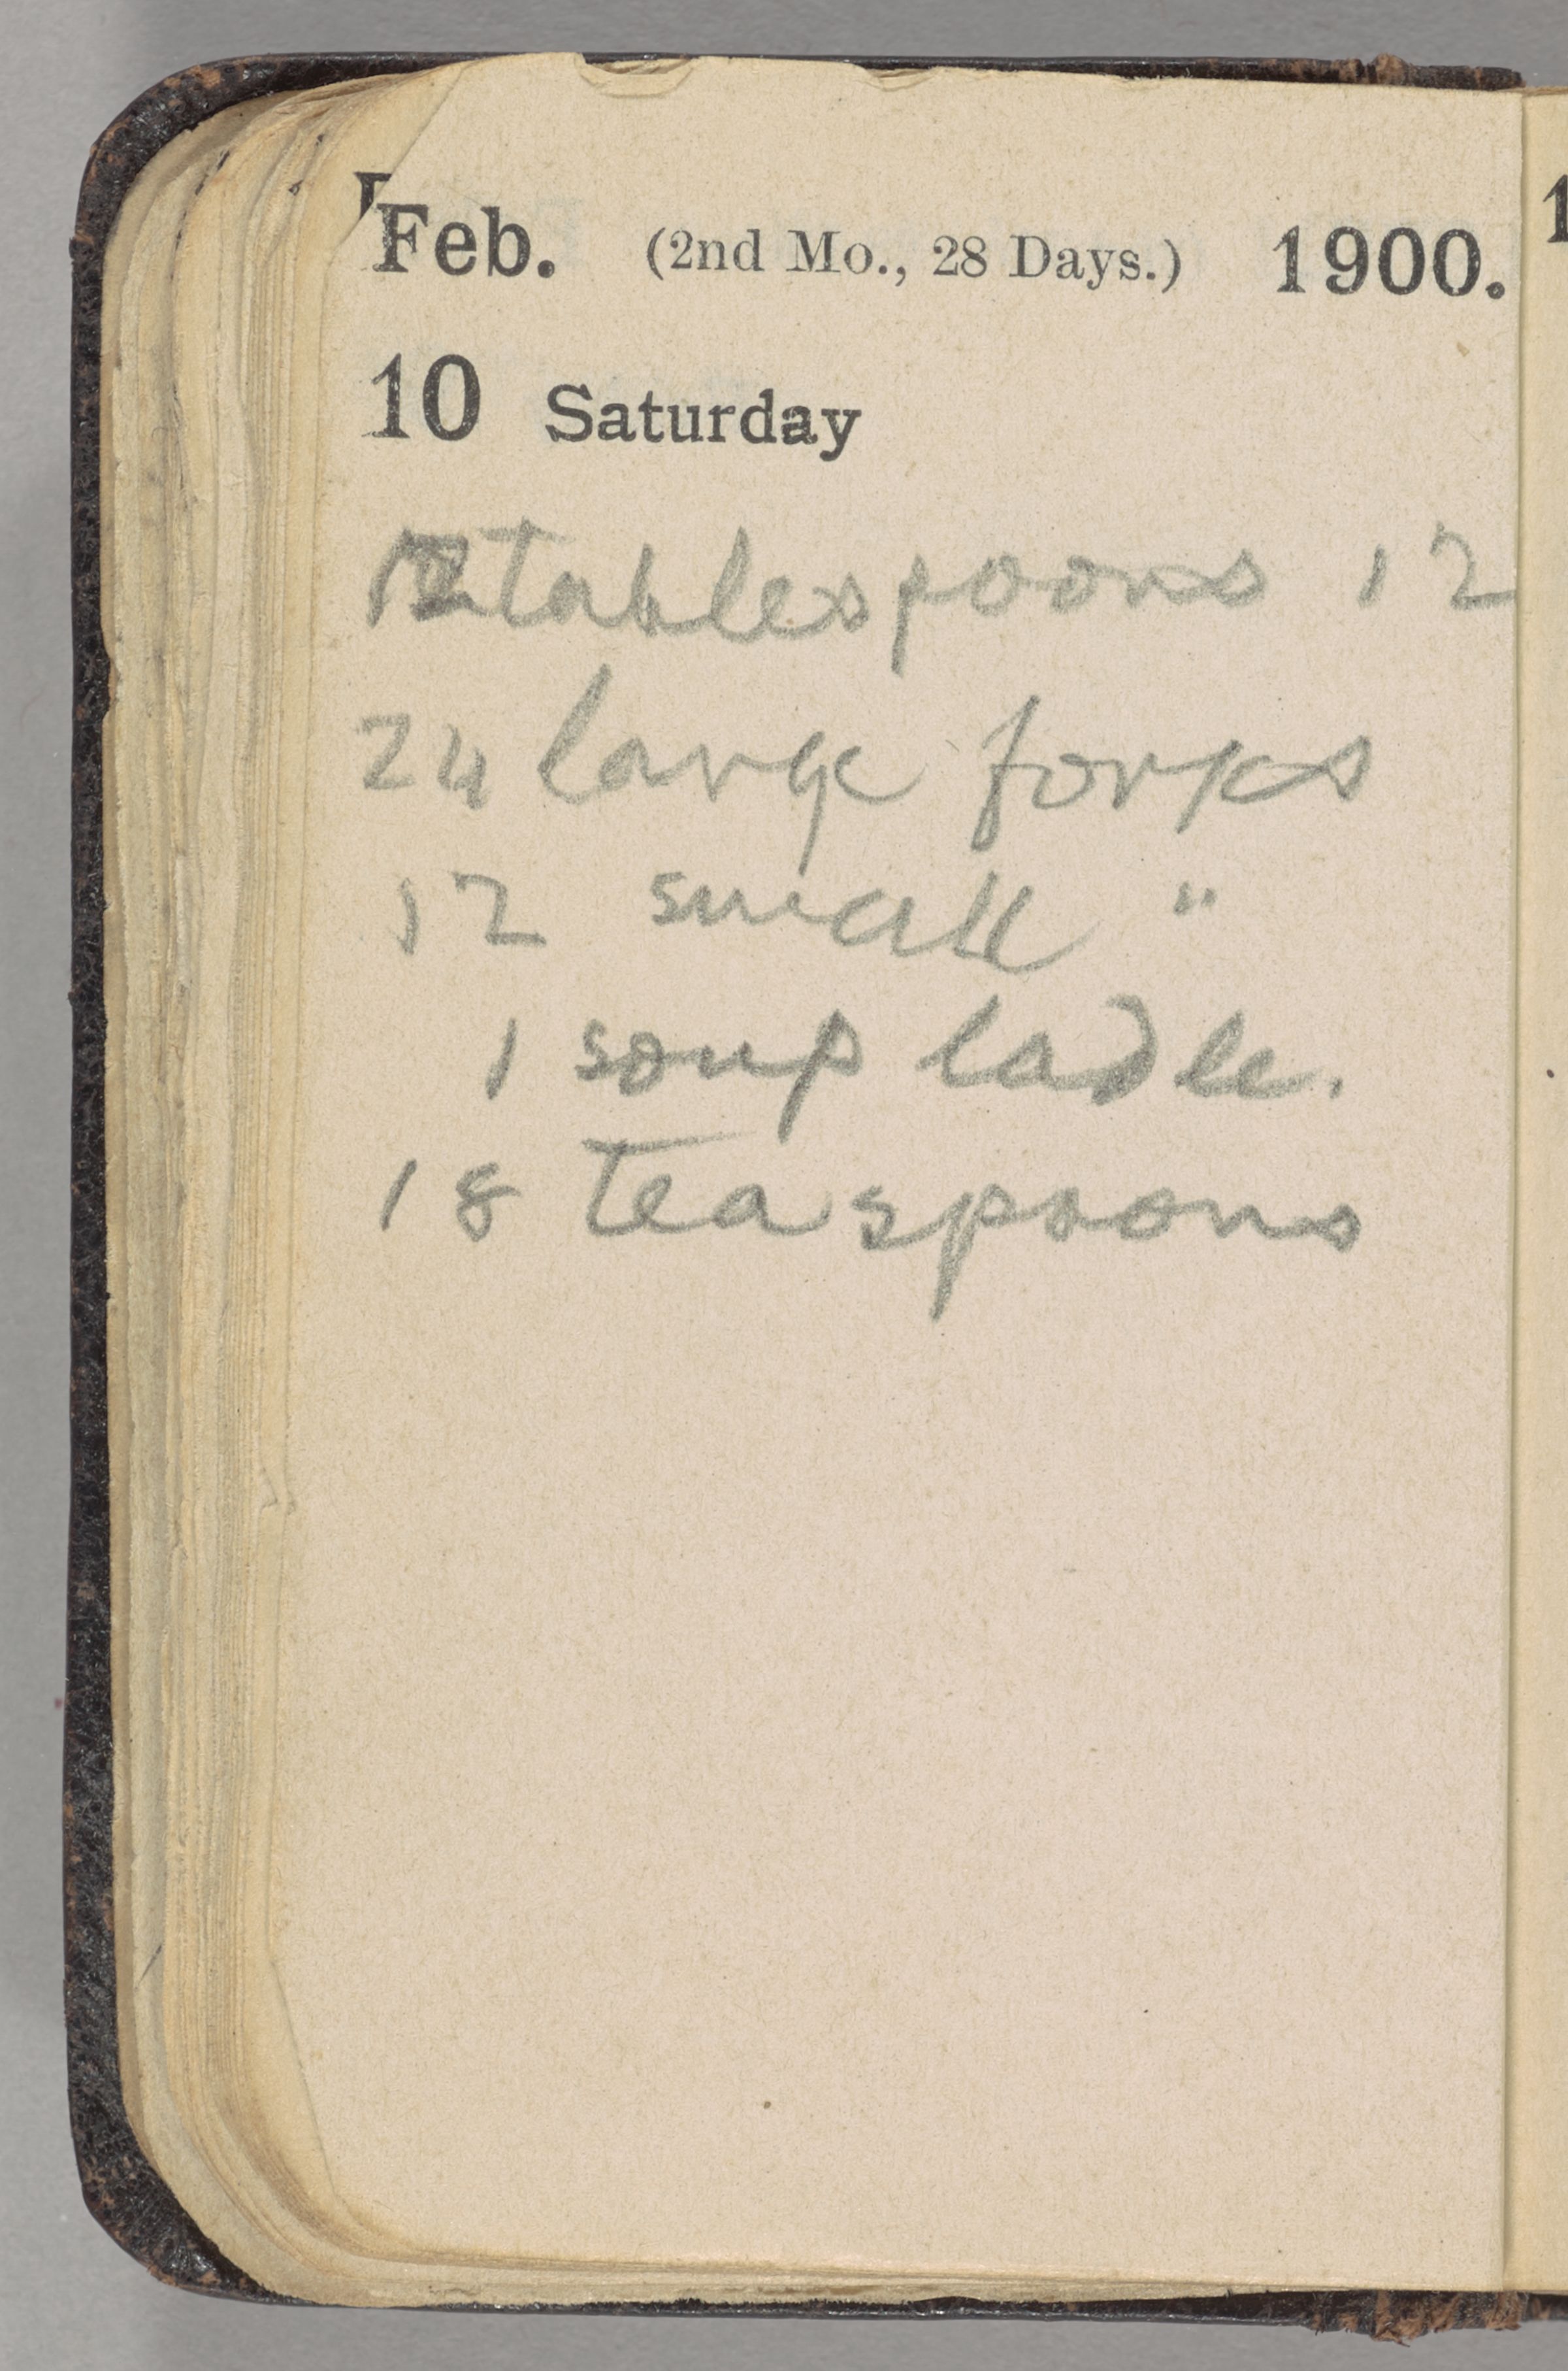 Feb. (2nd Mo., 28 Days.) 1900.
10 Saturday
12 tablespoons 12
24 large forks
12 small "
1 soup ladle.
18 teaspoons